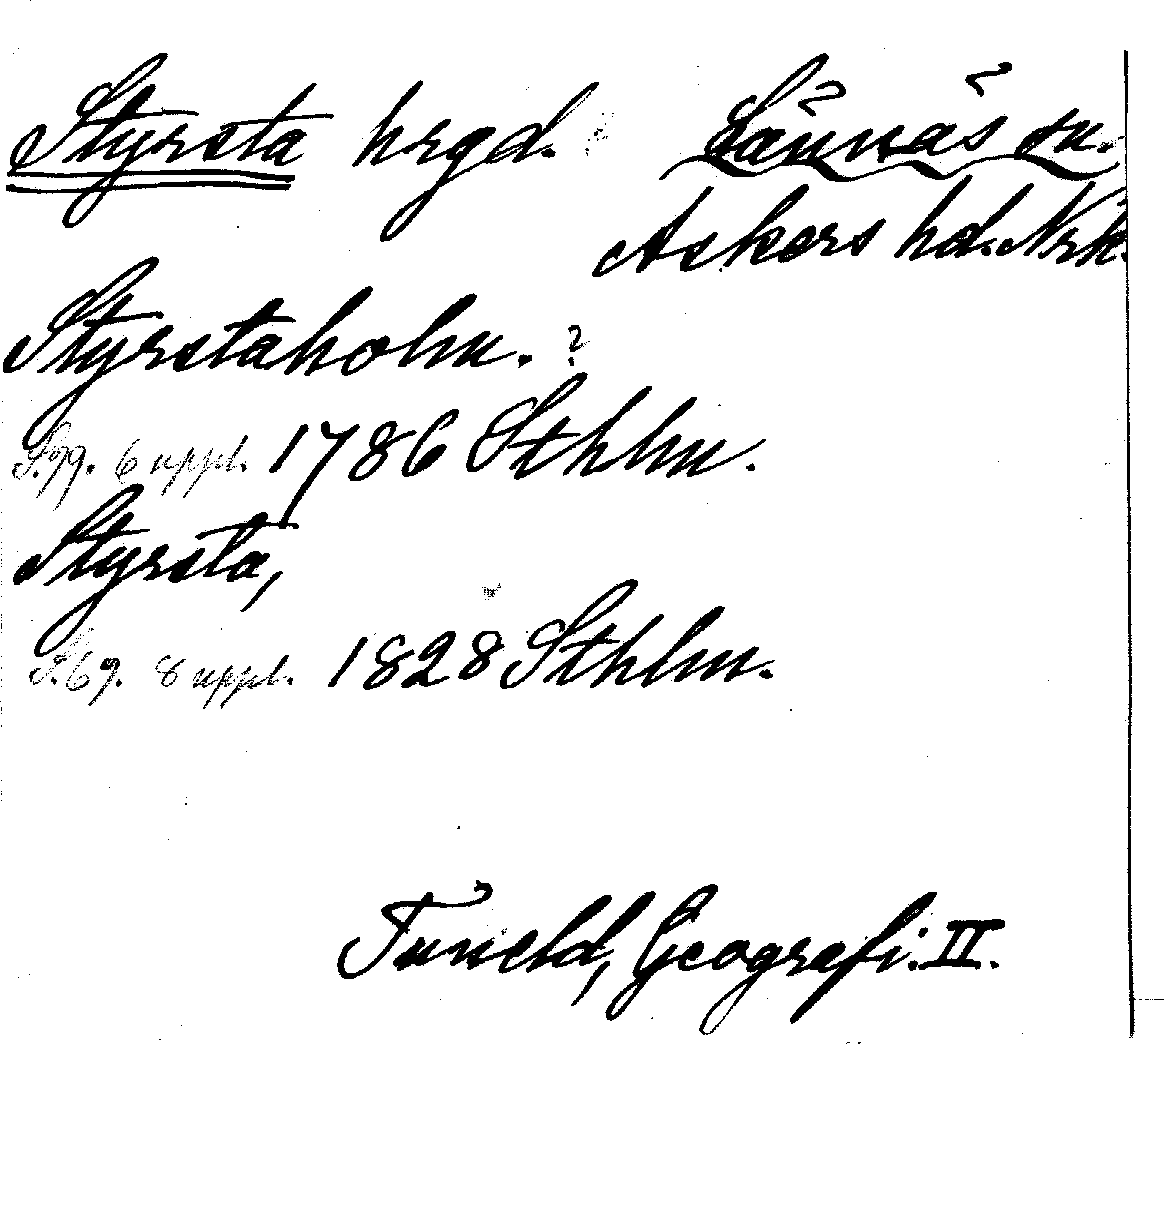 Styrsta hrgd. Lännäs sn.
Askers hd. Nrk.
Styrstaholm. ?
S. 99. 6 uppl. 1786 Sthlm.
Styrsta,
S. 69. 8 uppl. 1828 Sthlm.
Tuneld, Geografi. II.